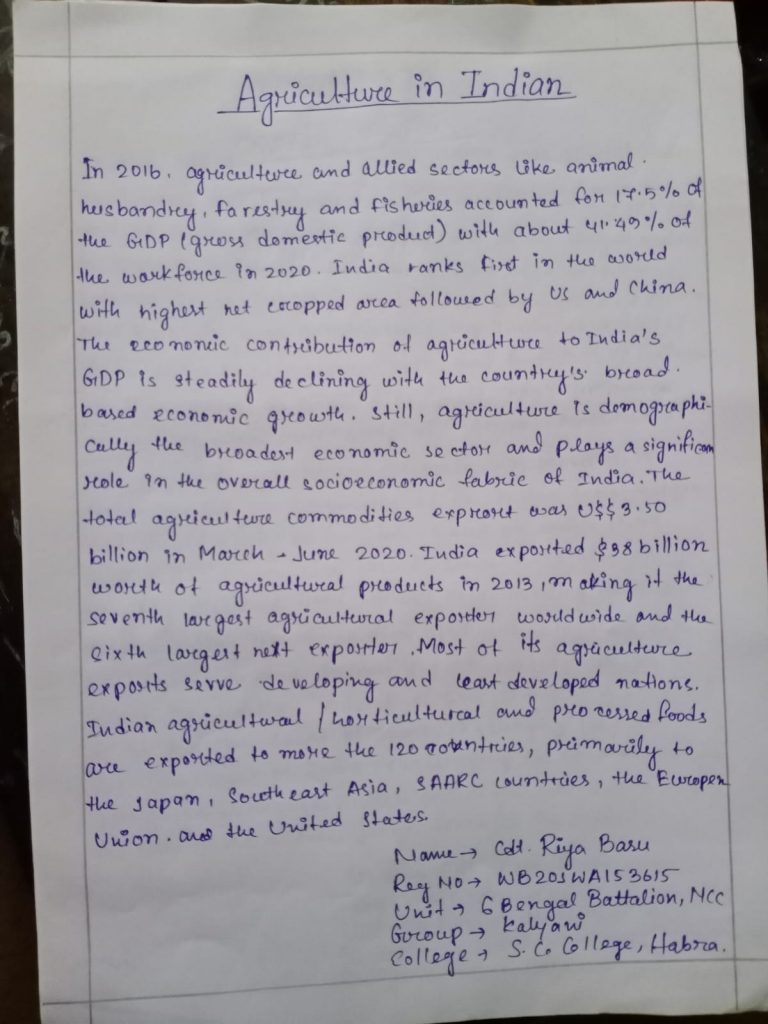 Agriculture in Indian
In 2016, agriculture and allied sectors like animal
husbandry, farestry and fisheries accounted for 17.5% of
the GDP (gross domestic product) with about 41.49% of
the workforce in 2020. India ranks first in the world
with highest net cropped area followed by US and China.
The economic contribution of agriculture to India's
GDP is steadily declining with the country's broad-
based economic growth. Still, agriculture is demographi-
cally the broadest economic sector and plays a significan
role in the overall socioeconomic fabric of India. The
total agriculture commodities export was US$ 3.50
billion in March - June 2020. India exported $38 billion
worth of agricultural products in 2013, making it the
seventh largest agricultural exporter worldwide and the
sixth largest nett exporter. Most of its agriculture
exports serve developing and least developed nations.
Indian agricultural / horticultural and processed foods
are exported to more the 120 countries, primarily to
the Japan, Southeast Asia, SAARC countries, the Europen
Union. and the United States.
Name → Cdt. Riya Basu
Reg No → WB20SWA153615
Unit → 6 Bengal Battalion, NCC
Group → Kalyani
College → S.C. College, Habra.